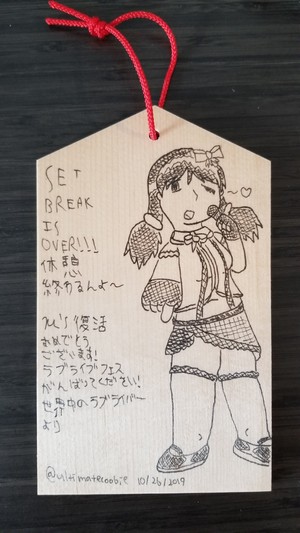 SET
BREAK
IS
OVER!!!
休憩
終わるんよ〜
μ's 復活
おめでとう
ございます!
ラブライブフェス
がんばってください!
世界中のラブライバー
より
@ultimatecobie 10/26/2019